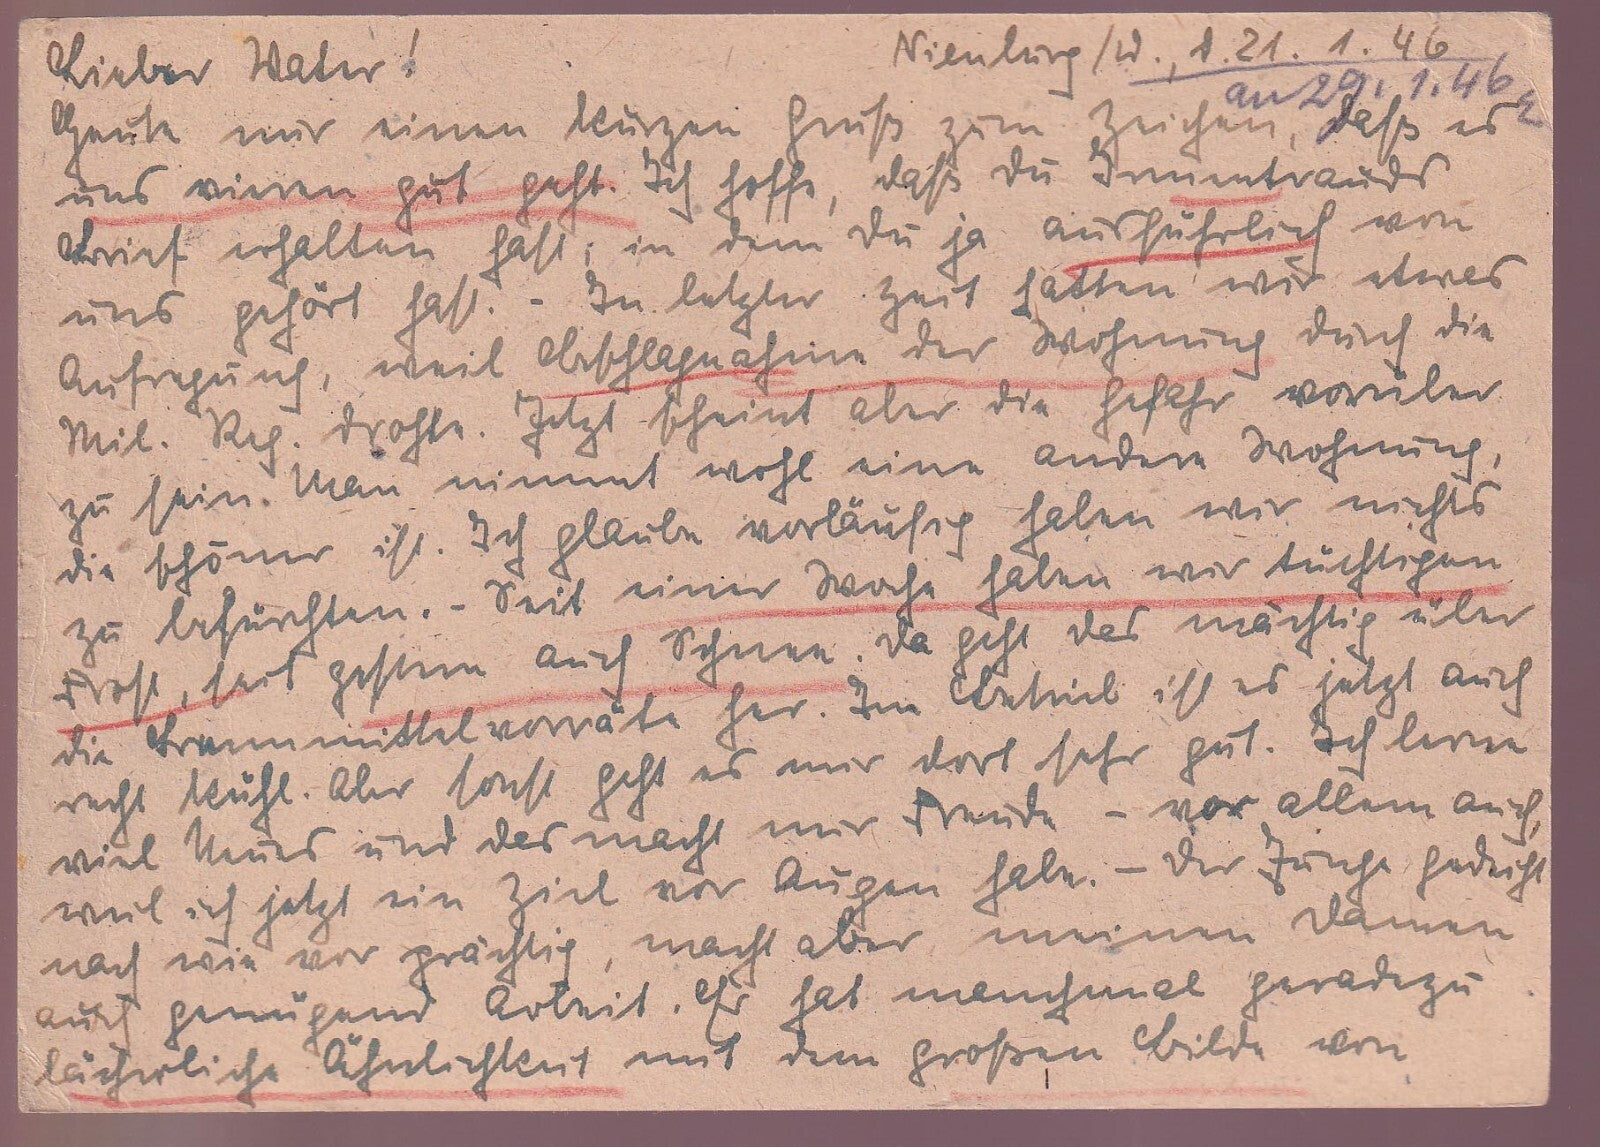 Lieber Vater! Nienburg/W., d. 21. 1. 46
an 29. 1. 46
Heute nur einen kurzen Gruß zum Zeichen, daß es
uns vieren gut geht. Ich hoffe, daß Du Irmentrauds
Brief erhalten hast, in dem Du ja ausführlich von
uns gehört hast. - In letzter Zeit hatten wir etwas
Aufregung, weil Beschlagnahme der Wohnung durch die
Mil. Reg. drohte. Jetzt scheint aber die Gefahr vorüber
zu sein. Man nimmt wohl eine andere Wohnung,
die schöner ist. Ich glaube vorläufig haben wir nichts
zu befürchten. - Seit einer Woche haben wir tüchtigen
Frost, seit gestern auch Schnee. Da geht das mächtig über
die Brennmittelvorräte her. Im Betrieb ist es jetzt auch
recht kühl. Aber sonst geht es mir dort sehr gut. Ich lerne
viel Neues und das macht mir Freude - vor allem auch,
weil ich jetzt ein Ziel vor Augen habe. - Der Junge gedeiht
nach wie vor prächtig, macht aber meinen Damen
auch genügend Arbeit. Er hat manchmal geradezu
lächerliche Ähnlichkeit mit dem großen Bilde von